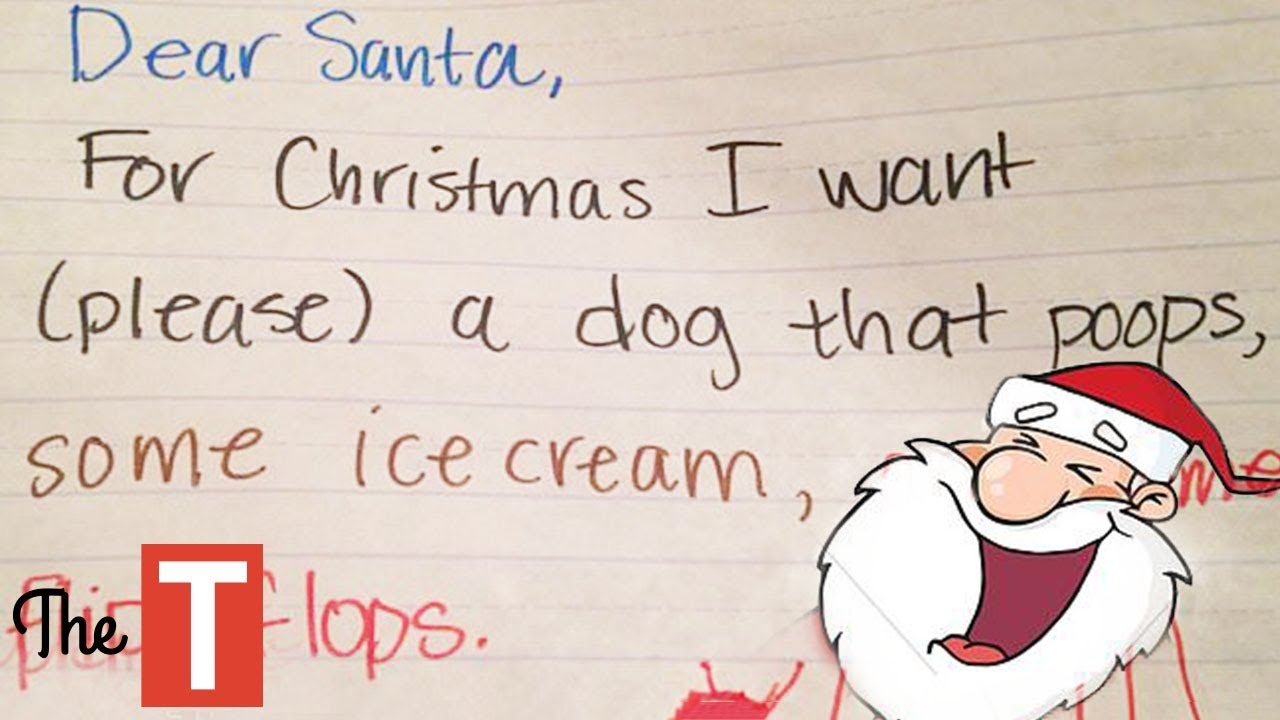 Dear Santa,
For Christmas I want
(please) a dog that poops,
some ice cream,
flops.
The T